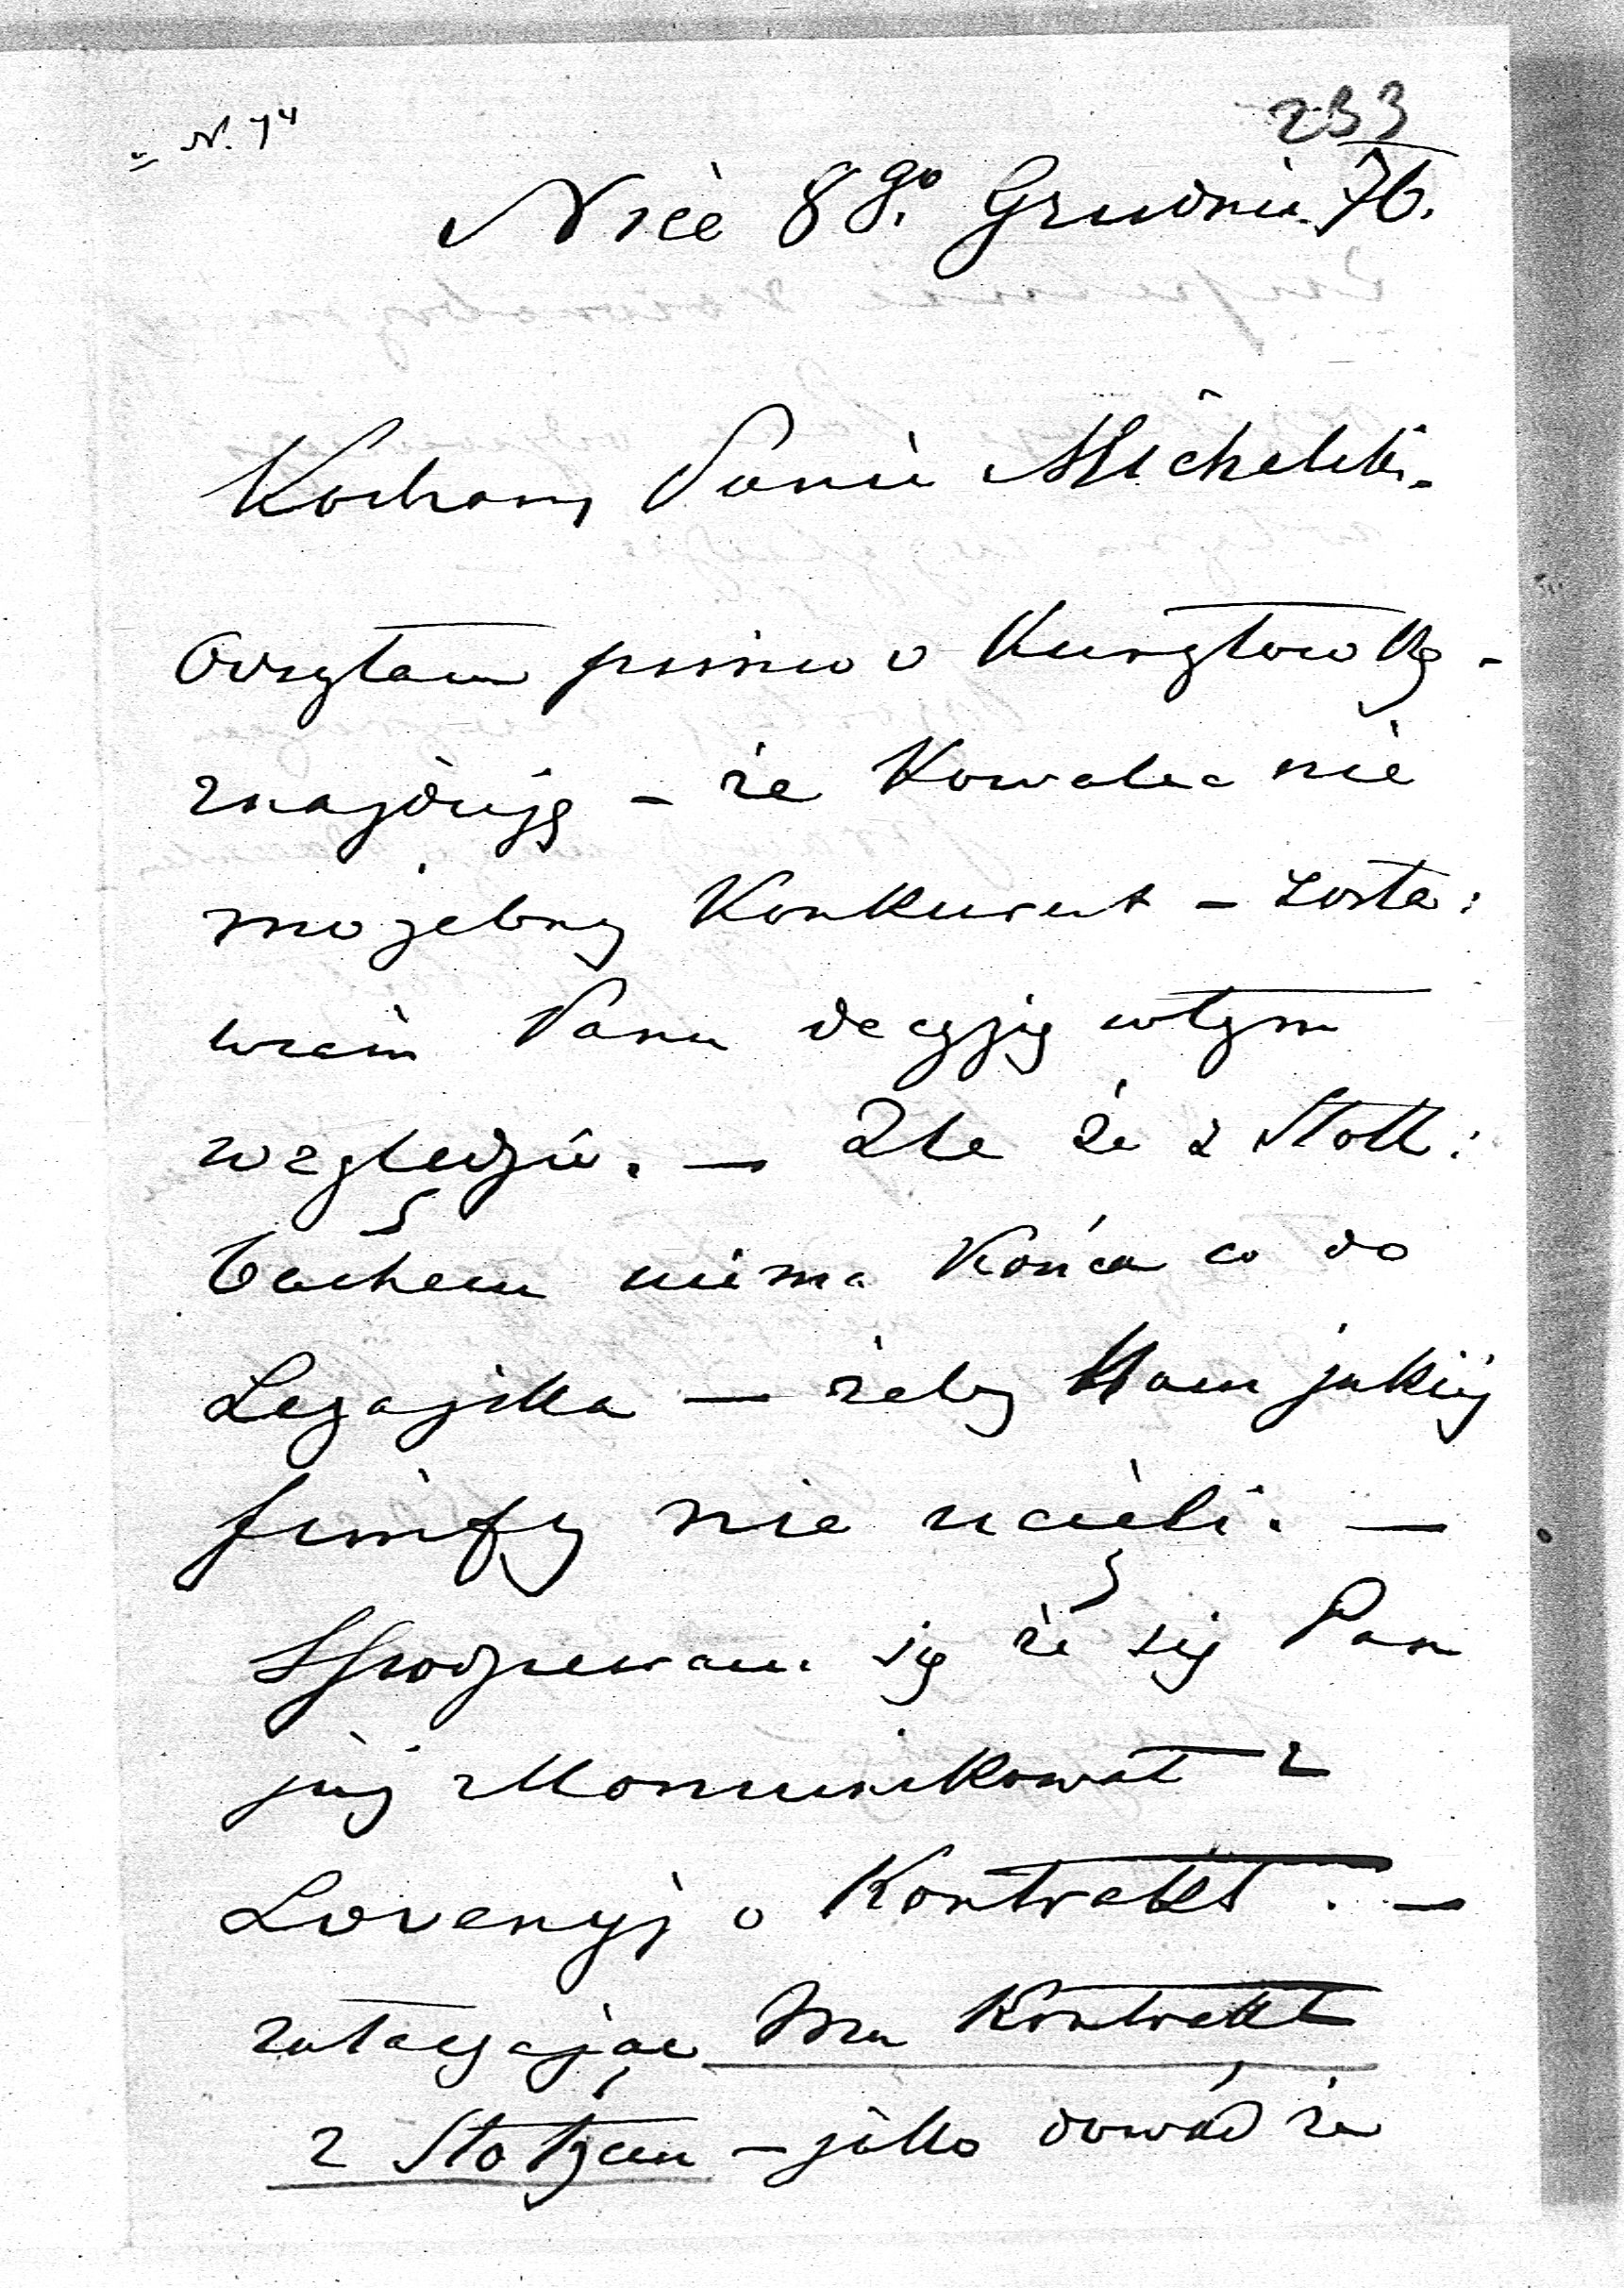 N. 74
233
Nice 8go. Grudnia 76.
Kochany Panie Michalski.
Odsyłam pismo o Kurzłowkę -
znajduję - że Kowalec nie
możebny Konkurent - zosta:
wiam Panu decyzję w tym
względzie. — Źle że z Stoll:
bachem niema Końca co do
Leżajska — żeby Nam jakiéj
fimfy nie ucięli. —
Spodziewam się że się Pan
już zkomunikował z
Lovenyj o Kontrakt. —
załączając Mu Kontrakt
z - jako dowód że